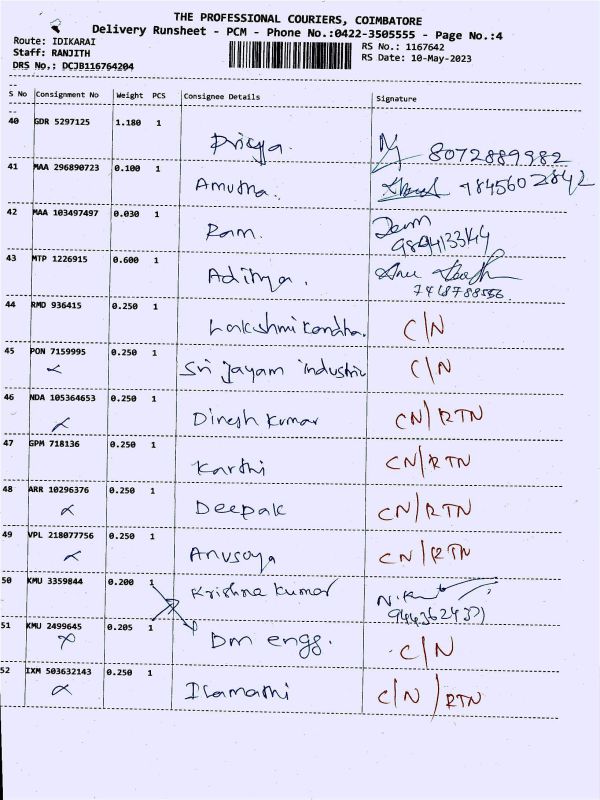 THE PROFESSIONAL COURIERS, COIMBATORE
Delivery Runsheet - PCM - Phone No.:0422-3505555 - Page No.:4
Route: IDIKARAI
Staff: RANJITH
DRS No.: DCJB116764204
RS No.: 1167642
RS Date: 10-May-2023
S No Consignment No Weight PCS Consignee Details Signature
40 GDR 5297125 1.180 1 Priya. 8072889982
41 MAA 296890723 0.100 1 Amutha. 9845602842
42 MAA 103497497 0.030 1 Ram.
43 MTP 1226915 0.600 1 Aditya.
44 RMD 936415 0.250 1 Lakshmikandha. C/N
45 PON 7159995 0.250 1 Sri Jayam industric C/N
46 NDA 105364653 0.250 1 Dinesh kumar CN/RTN
47 GPM 718136 0.250 1 Karthi CN/RTN
48 ARR 10296376 0.250 1 Deepak CN/RTN
49 VPL 218077756 0.250 1 Anusoya CN/RTN
50 KMU 3359844 0.200 1 Krishna kumar
51 KMU 2499645 0.205 1 Dm engs. C/N
52 IXM 503632143 0.250 1 Ilamathi C/N/RTN